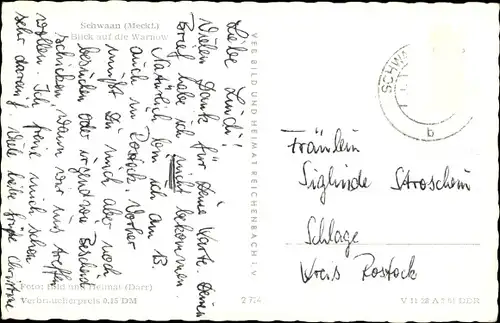 Schwaan (Meckl.)
Blick auf die Warnow
Liebe Lindi!
Vielen Dank für Deine Karte. Deinen
Brief habe ich nicht bekommen.
Natürlich komm ich am 13.
auch in Rostock. Vorher
mußt Du mich aber noch
besuchen oder irgendwo Bescheid
schreiben wann wir uns treffen
wollen. Ich freue mich schon
sehr darauf. Viele liebe Grüße Christine
Foto: Bild und Heimat (Darr)
Verbraucherpreis 0,15 DM
VEB BILD UND HEIMAT REICHENBACH i. V.
2 774
SCHWA
b
Fräulein
Siglinde Stroschein
Schlage
Kreis Rostock
V 11 28 A
DDR